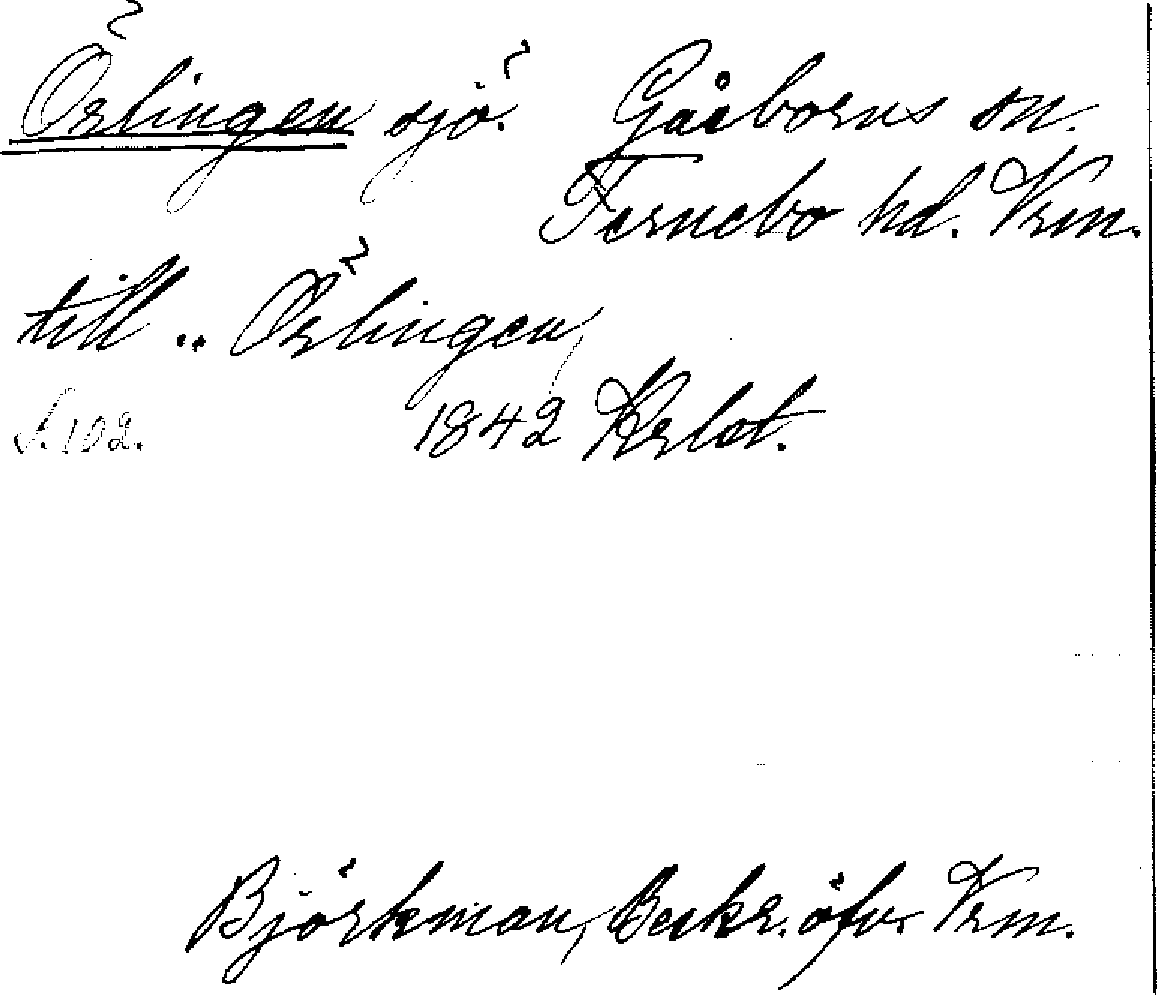 Örlingen sjö. Gåsborns sn.
Fernebo hd. Vrm.
till .. Örlingen,
s. 102. 1842
Björkman, Beskr. öfv. Vrm.